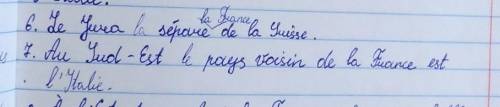 la France
6. Le Jura la sépare de la Suisse.
7. Au Sud-Est le pays voisin de la France est
l'Italie.